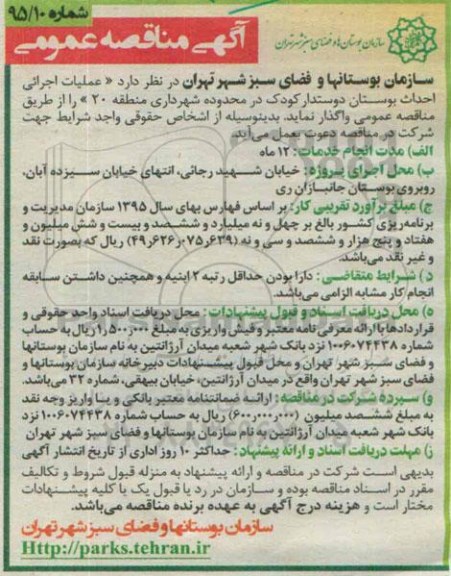 شماره ۹۵/۱۰
آگهی مناقصه عمومی
سازمان بوستان‌ها و فضای سبز شهر تهران
سازمان بوستانها و فضای سبز شهر تهران در نظر دارد « عملیات اجرائی
احداث بوستان دوستدار کودک در محدوده شهرداری منطقه ۲۰ » را از طریق
مناقصه عمومی واگذار نماید. بدینوسیله از اشخاص حقوقی واجد شرایط جهت
شرکت در مناقصه دعوت بعمل می‌آید.
الف) مدت انجام خدمات : ۱۲ ماه
ب) محل اجرای پروژه : خیابان شهید رجائی، انتهای خیابان سیزده آبان،
روبروی بوستان جانبازان ری
ج) مبلغ برآورد تقریبی کار : بر اساس فهارس بهای سال ۱۳۹۵ سازمان مدیریت و
برنامه‌ریزی کشور بالغ بر چهل و نه میلیارد و ششصد و بیست و شش میلیون و
هفتاد و پنج هزار و ششصد و سی و نه (۴۹٫۶۲۶٫۰۷۵٫۶۳۹) ریال که بصورت نقد
و غیر نقد می‌باشد.
د ) شرایط متقاضی : دارا بودن حداقل رتبه ۲ ابنیه و همچنین داشتن سابقه
انجام کار مشابه الزامی می‌باشد.
ه) محل دریافت اسناد و قبول پیشنهادات : محل دریافت اسناد واحد حقوقی و
قراردادها با ارائه معرفی نامه معتبر و فیش واریزی به مبلغ ۱٫۵۰۰٫۰۰۰ ریال به حساب
شماره ۱۰۰۶۰۷۴۴۳۸ نزد بانک شهر شعبه میدان آرژانتین به نام سازمان بوستانها
و فضای سبز شهر تهران و محل قبول پیشنهادات دبیرخانه سازمان بوستانها و
فضای سبز شهر تهران واقع در میدان آرژانتین، خیابان بیهقی، شماره ۳۲ می‌باشد.
و) سپرده شرکت در مناقصه : ارائه ضمانتنامه معتبر بانکی و یا واریز وجه نقد
به مبلغ ششصد میلیون (۶۰۰٫۰۰۰٫۰۰۰) ریال به حساب شماره ۱۰۰۶۰۷۴۴۳۸ نزد
بانک شهر شعبه میدان آرژانتین به نام سازمان بوستانها و فضای سبز شهر تهران
ز) مهلت دریافت اسناد و ارائه پیشنهاد : حداکثر ۱۰ روز اداری از تاریخ انتشار آگهی
بدیهی است شرکت در مناقصه و ارائه پیشنهاد به منزله قبول شروط و تکالیف
مقرر در اسناد مناقصه بوده و سازمان در رد یا قبول یک یا کلیه پیشنهادات
مختار است و هزینه درج آگهی به عهده برنده مناقصه می‌باشد.
سازمان بوستانها و فضای سبز شهر تهران
Http://parks.tehran.ir